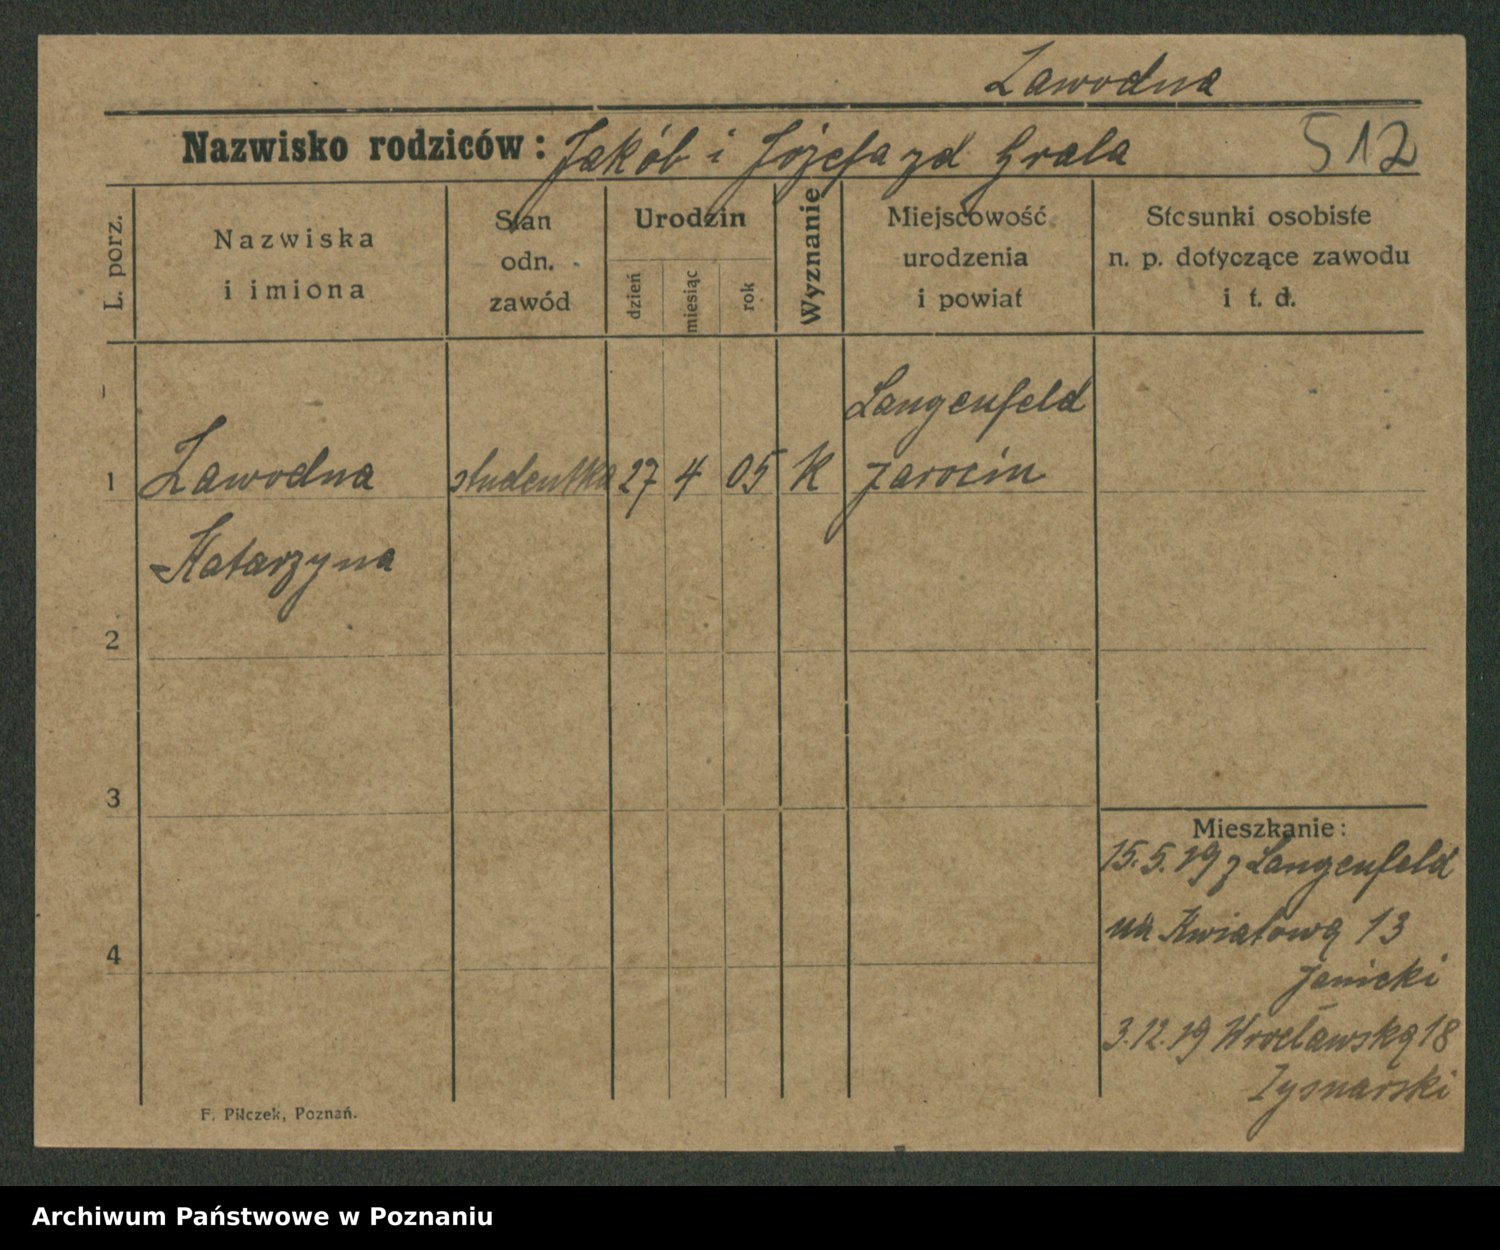 Zawodna
Nazwisko rodziców: Jakób i Józefa zd Grala 512
L. porz.
Nazwiska i imiona
Stan odn. zawód
Urodzin
dzień
miesiąc
rok
Wyznanie
Miejscowość urodzenia i powiat
Stosunki osobiste n. p. dotyczące zawodu i t. d.
Langenfeld
1 Zawodna studentka 27 4 05 k Jarocin
Katarzyna
2
3
4
Mieszkanie:
15.5.19 z Langenfeld
na Kwiatową 13
Janicki
3.12.19 Wrocławską 18
F. Pilczek, Poznań.
Archiwum Państwowe w Poznaniu